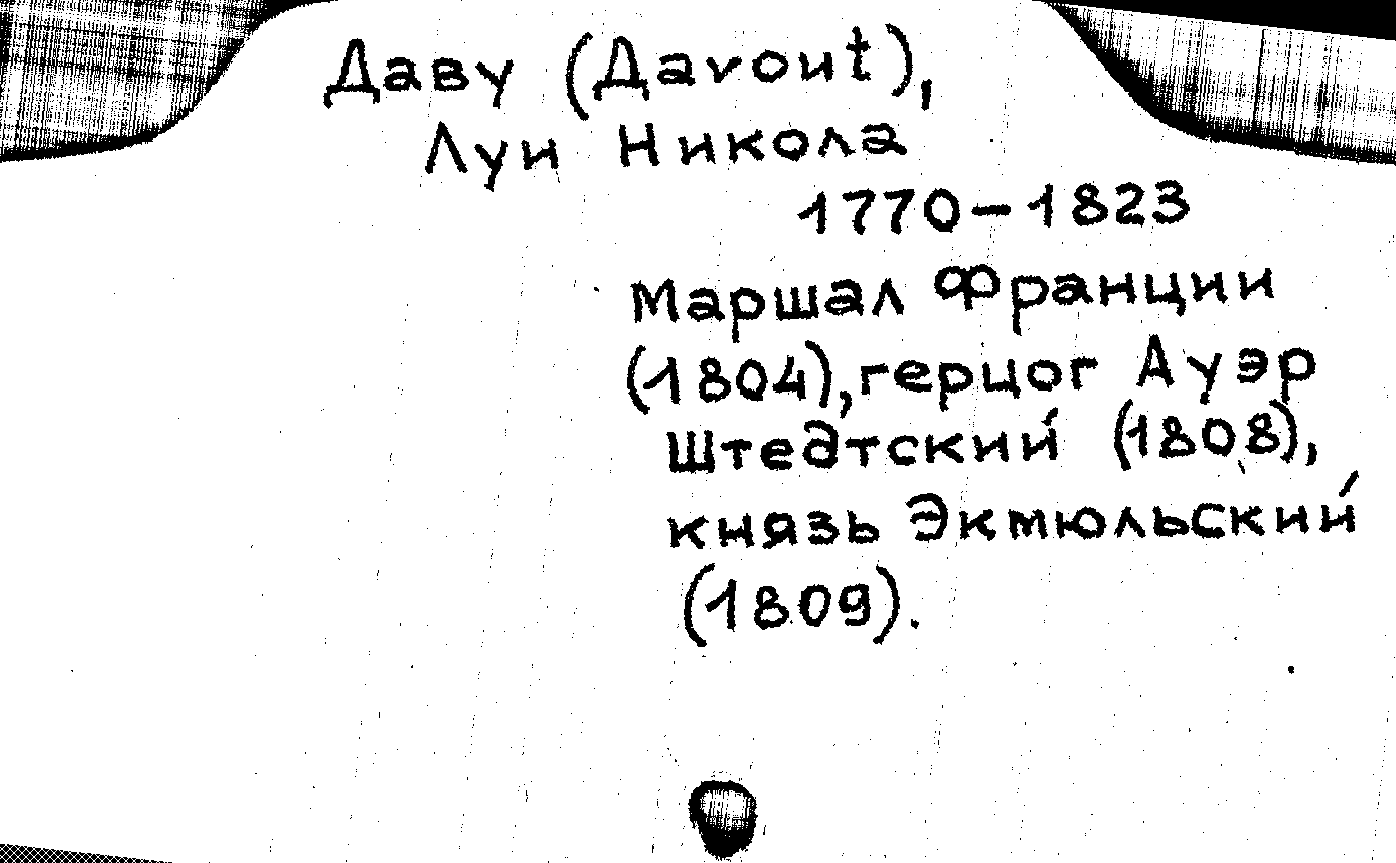 Даву (Даvout),
Луи Никола
1770-1823
Маршал Франции
(1804), герцог Ауэр
Штедтский (1808),
князь Экмюльский
(1809).